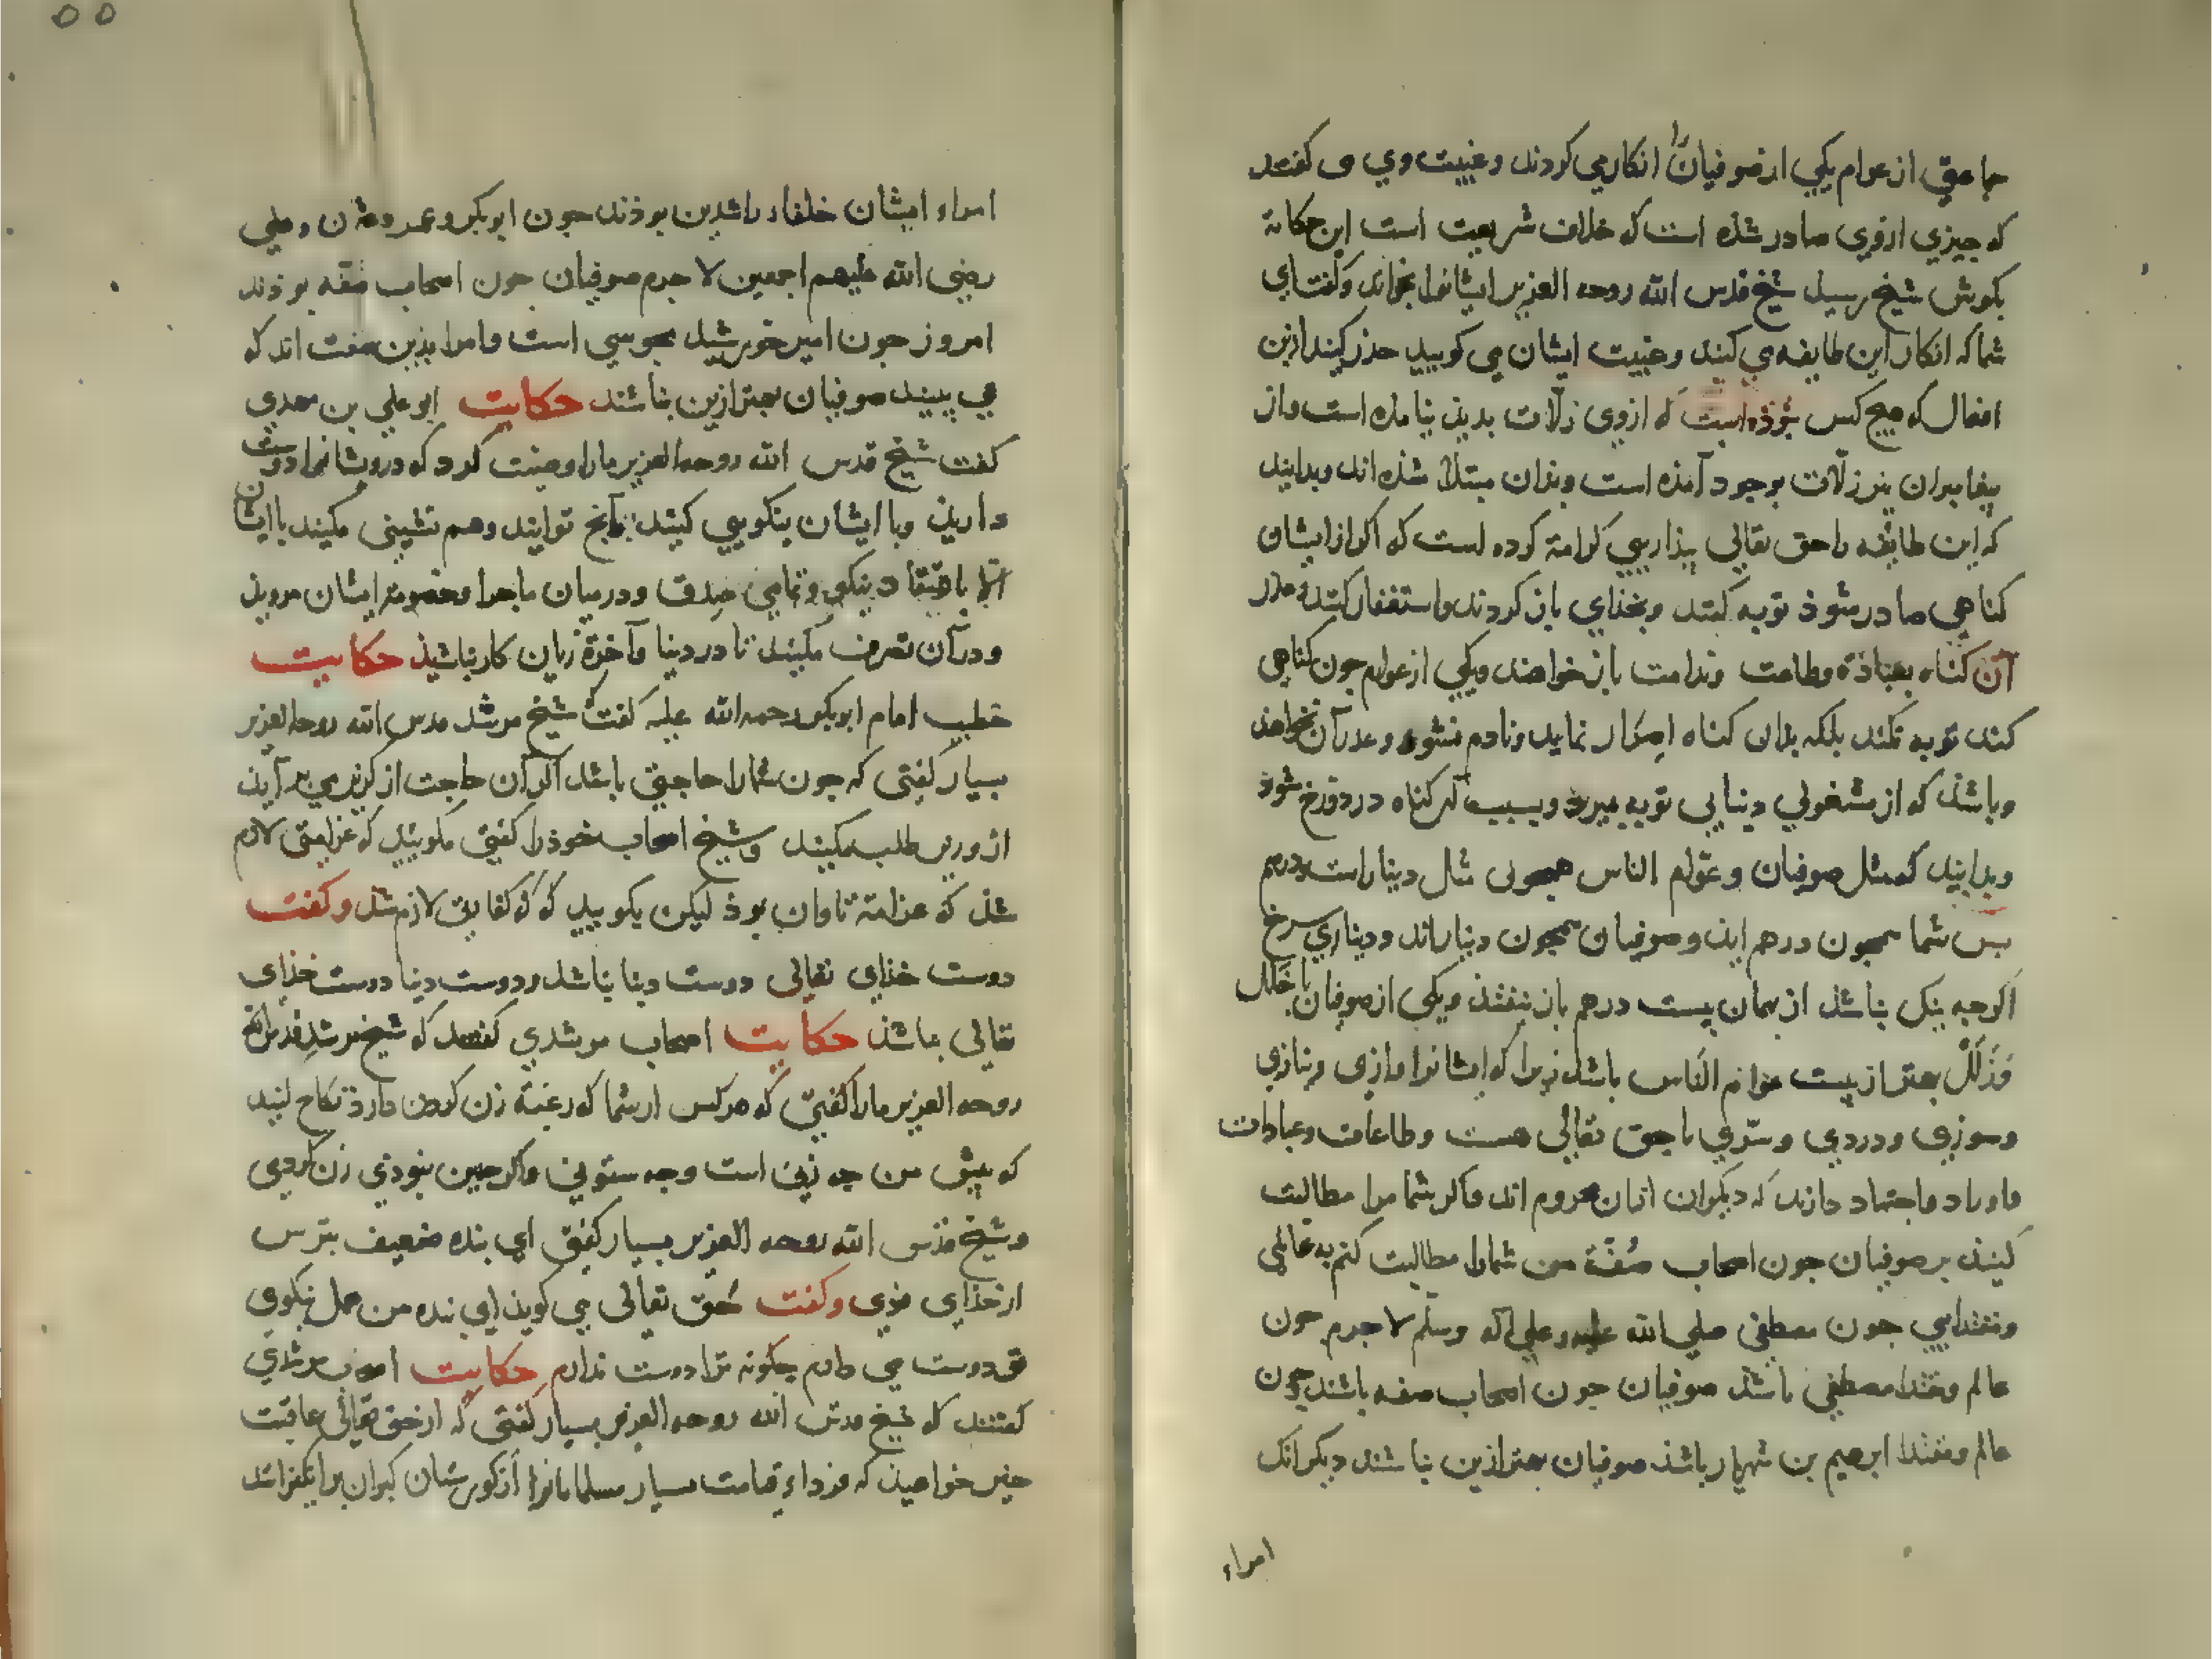 جماعتی از عوام یکی از صوفیان را انکار می کردند و غیبت وی می کفتند
که جیزی ازوی صادر شذه است که خلاف شریعت است این حکایة
بکوش شیخ رسید شیخ قدس الله روحه العزیز ایشانرا بخواند وکفت ای
شما که انکار این طایفه می کنید وغیبت ایشان می کویید حذر کنید ازین
افعال که هیج کس نبوذه است که ازوی زلّات بدید نیامده است واز
پیغامبران نیز زلّات بوجود آمذه است وبذان مبتلا شذه اند وبدانید
که این طایفه را حق تعالی بیذاریی کرامة کرده است که اکر از ایشان
کناهی صادر شوذ توبه کنند وبخذای باز کردند واستغفار کنند وعذر
آن کناه بعباذة وطاعت وندامت باز خواهند ویکی از عوام جون کناهی
کند توبه نکند بلکه بذان کناه اصرار نماید ونادم نشود وعذر آن نخواهذ
وباشذ که از مشغولی دنیا بی توبه میرد وبسبب آن کناه در دوزخ شوذ
وبدانید که مثل صوفیان وعوّام الناس همجون مثال دیناراست ودرهم
بس شما همجون درهم ایذ وصوفیان همجون دیناراند ودیناری سرخ
اکرجه نیک نباشذ از همان بیست درهم باز نیفتذ ویکی از صوفیان با خلل
وزلل بهتر از بیست عوام الناس باشذ زیرا که ایشانرا رازی ونیازی
وسوزی ودردی وسرّی با حق تعالی هست وطاعات وعبادات
واوراد واجتهاد دارند که دیکران ازان محروم اند واکر شما مرا مطالبت
کنید بر صوفیان جون اصحاب صُفّة من شمارا مطالبت کنم به عالمی
ومقتدایی جون مصطفی صلی الله علیه وعلی آله وسلم لا جرم جون
عالم ومقتدا مصطفی باشذ صوفیان جون اصحاب صفه باشند جون
عالم ومقتدا ابرهیم بن شهریار باشذ صوفیان بهتر ازین نباشند دیکر آنک
امراء
امراء ایشان خلفاء راشدین بوذند جون ابوبکر وعمر وعثمان وعلی
رضی الله علیهم اجمعین لا جرم صوفیان جون اصحاب صفّه بوذند
امروز جون امیر خورشید مجوسی است وامرا بذین صفت اند که
می بینید صوفیان بهتر ازین نباشند حکایت ابوعلی بن مهدی
کفت شیخ قدس الله روحه العزیز مارا وصیّت کرد که درویشانرا دوست
داریذ وبا ایشان نیکویی کنید بآنج توانید وهم نشینی مکنید با ایشان
الّا باعتقاد نیکو وتمامی صدق ودرمیان ماجرا وخصومة ایشان مرویذ
ودرآن تصرف مکنید تا در دنیا وآخرة زیان کار نباشیذ حکایت
خطیب امام ابوبکر رحمه الله علیه کفت شیخ مرشد قدس الله روحه العزیز
بسیار کفتی که جون شمارا حاجتی باشد اکر آن حاجت از برمی آیذ
از طلب مکنید وشیخ اصحاب خوذ را کفتی مکویید که غرامتی لازم
شذ که غرامة تاوان بوذ لیکن بکویید که کفایتی لازم شذ وکفت
دوست خذای تعالی دوست دنیا نباشذ ودوست دنیا دوست خذای
تعالی نباشذ حکایت اصحاب مرشدی کفتند که شیخ مرشد قدس الله
روحه العزیز مارا کفتی که هرکس از شما که رغبة زن کردن دارذ نکاح کنید
که بیش من جه زنی است وجه ستونی واکر جنین نبوذی زن کردمی
وشیخ قدس الله روحه العزیز بسیار کفتی ای بنده ضعیف بترس
از خذای قوی وکفت حق تعالی می کویذ ای بنده من عمل نیکوی
تو دوست می دارم جکونه ترا دوست ندارم حکایت اصحاب مرشدی
کفتند که شیخ قدس الله روحه العزیز بسیار کفتی که از حق تعالی عاقبت
خیر خواهیذ که فرداء قیامت بسیار مسلمانانرا از کورستان کبران برانکیزانند